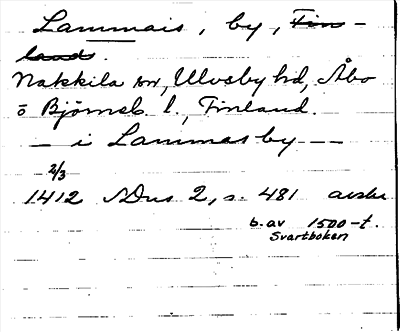 Lammais, by, Fin-
lands.
Nakkila sn, Ulvsby hd, Åbo
o Björneb. l., Finland.
— i Lammas by —
2/3
1412 SDns 2, s. 481 avskr
b. av 1500-t.
Svartboken